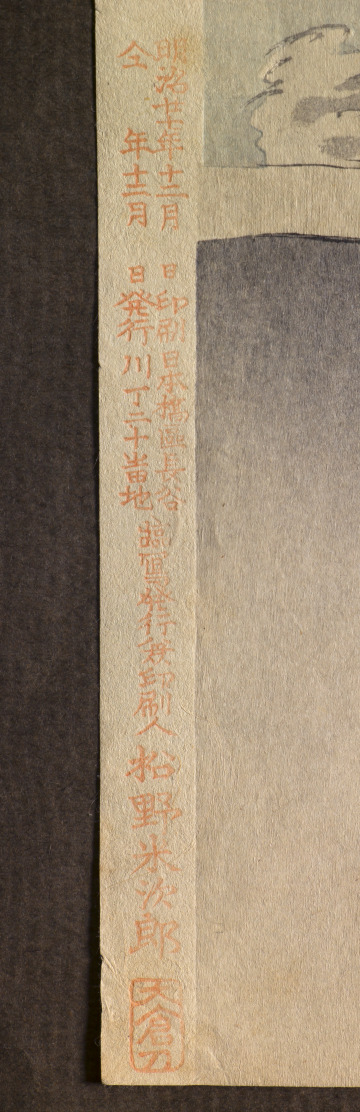 明治廿十年十二月 日印刷日本橋區長谷
仝 年十二月 日発行川丁二十番地
臨寫発行兼印刷人
松野米次郎